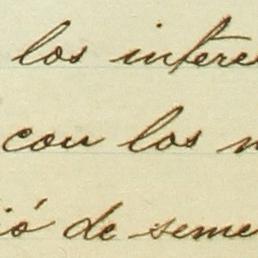 los intere
con los n
ió de seme